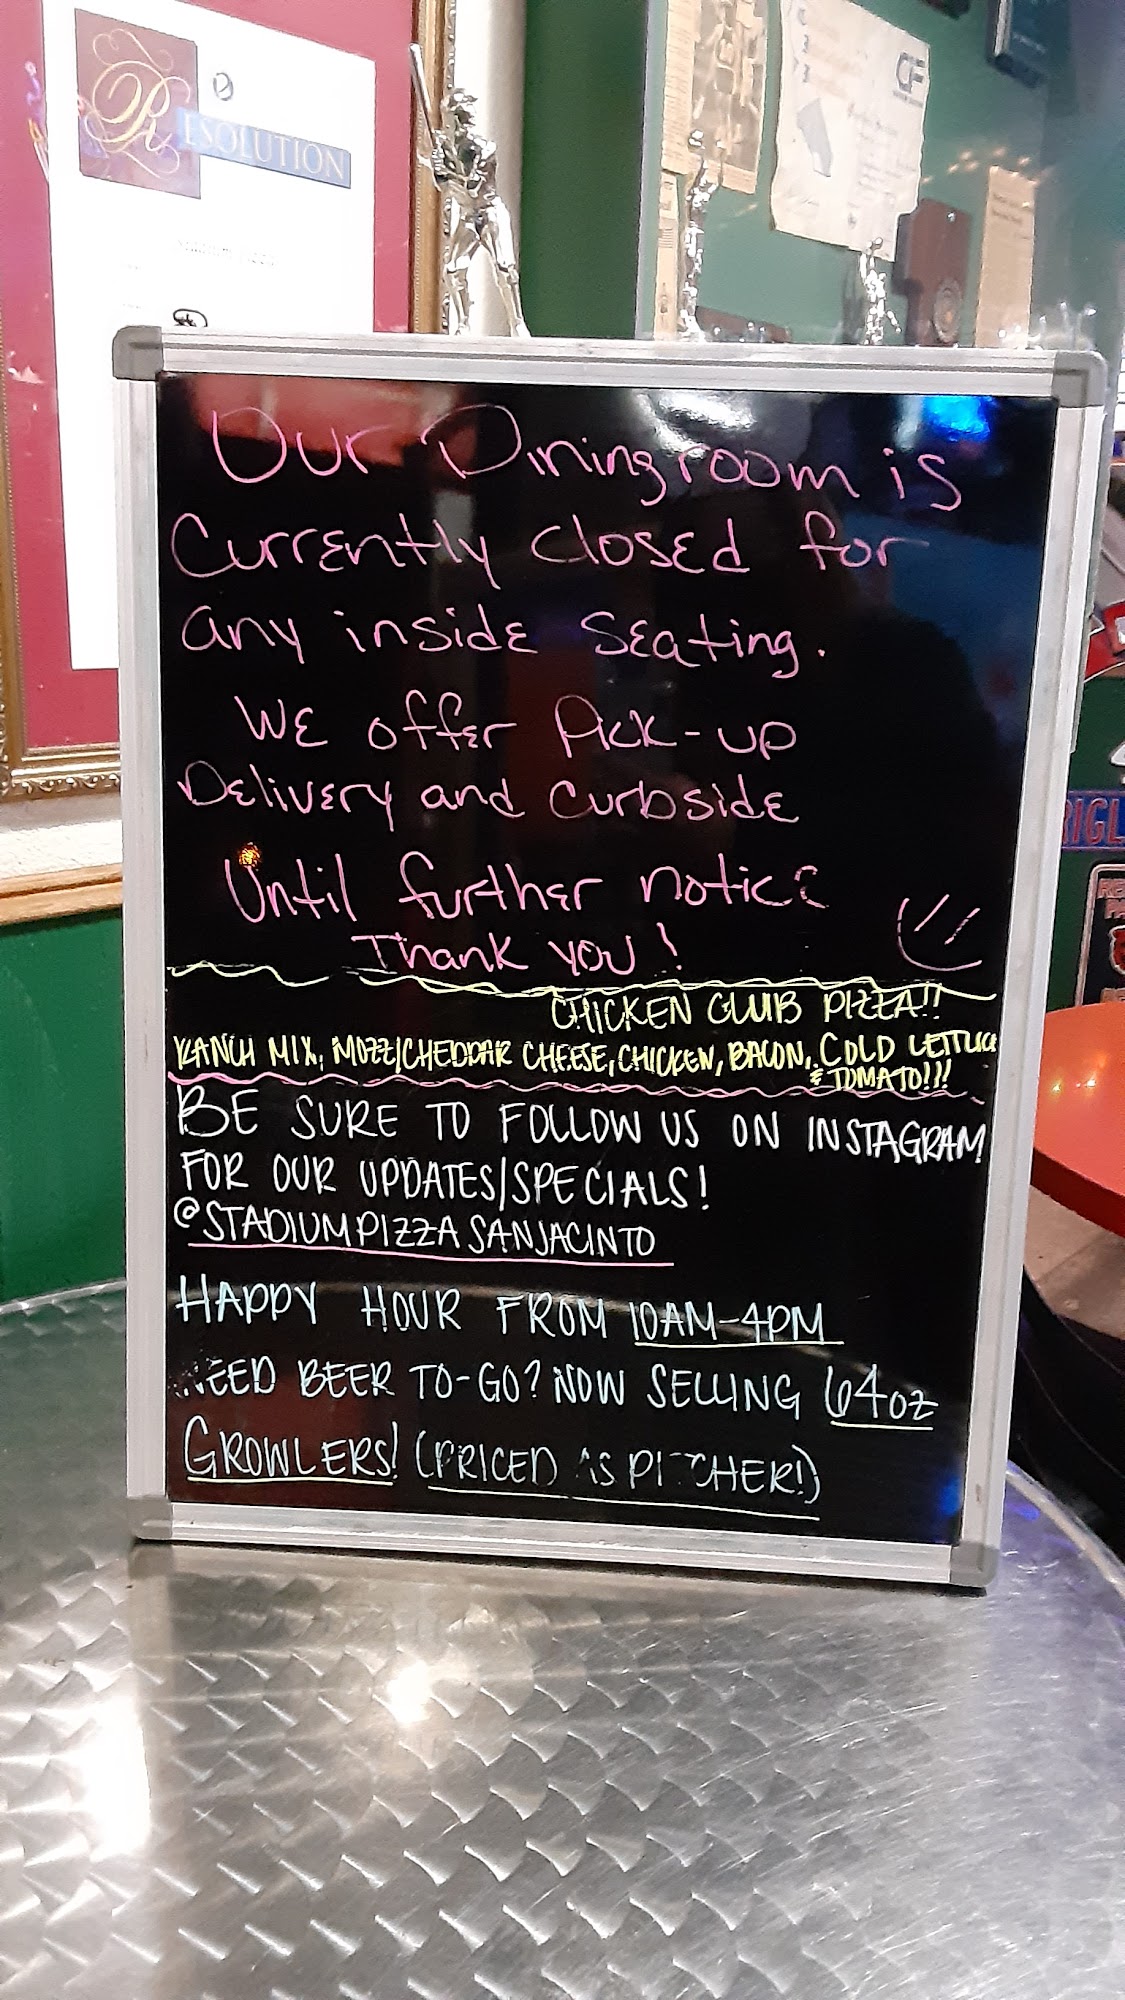 RESOLUTION
CF
Our Diningroom is
Currently closed for
any inside Seating.
We offer Pick-up
Delivery and curbside
Until further notice
Thank you!
CHICKEN CLUB PIZZA!!
RANCH MIX, MOZZ/CHEDDAR CHEESE, CHICKEN, BACON, COLD LETTUCE
& TOMATO!!!
BE SURE TO FOLLOW US ON INSTAGRAM
FOR OUR UPDATES/SPECIALS!
@STADIUMPIZZASANJACINTO
HAPPY HOUR FROM 10AM-4PM
NEED BEER TO-GO? NOW SELLING 64oz
GROWLERS! (PRICED AS PITCHER!)